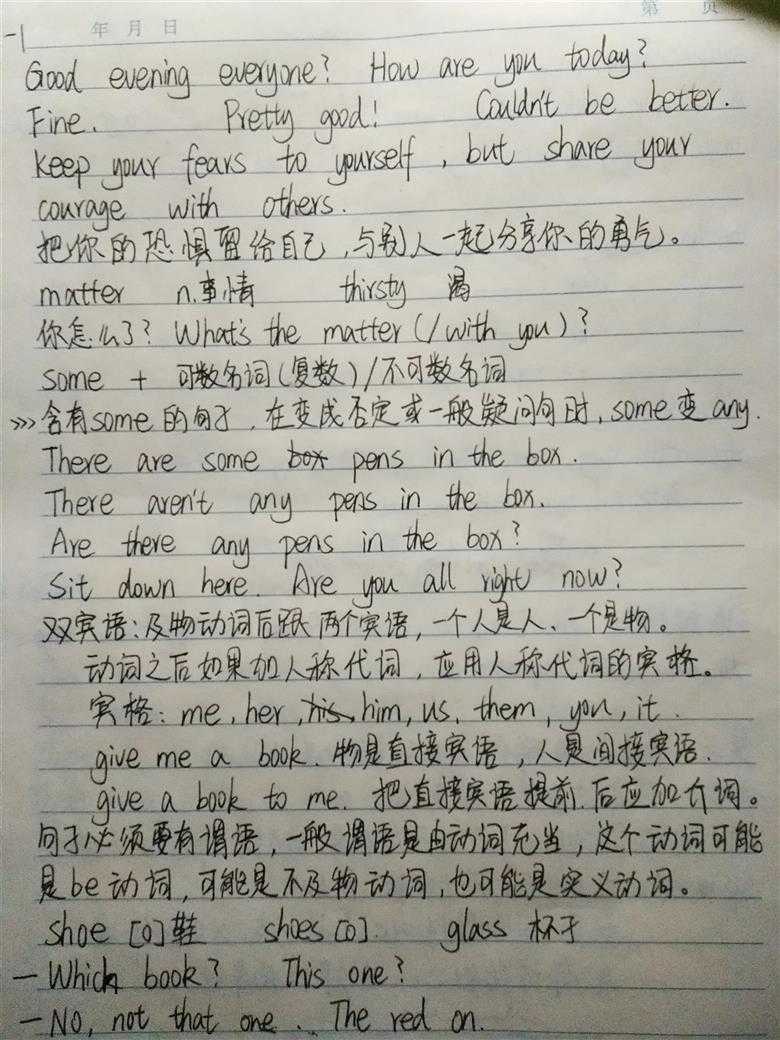 年 月 日 第 页
Good evening everyone? How are you today?
Fine. Pretty good! Couldn't be better.
keep your fears to yourself, but share your
courage with others.
把你的恐惧留给自己,与别人一起分享你的勇气。
matter n.事情 thirsty 渴
你怎么了? What's the matter (/with you)?
some + 可数名词(复数)/不可数名词
>>> 含有some的句子,在变成否定或一般疑问句时,some变any.
There are some box pens in the box.
There aren't any pens in the box.
Are there any pens in the box?
Sit down here. Are you all right now?
双宾语:及物动词后跟两个宾语,一个人是人、一个是物。
动词之后如果加人称代词,应用人称代词的宾格。
宾格:me, her, his, him, us, them, you, it.
give me a book. 物是直接宾语,人是间接宾语.
give a book to me. 把直接宾语提前.后应加介词。
句子必须要有谓语,一般谓语是由动词充当,这个动词可能
是be动词,可能是不及物动词,也可能是实义动词。
shoe [o]鞋 shoes [o]. glass 杯子
— Which book? This one?
— No, not that one. The red on.